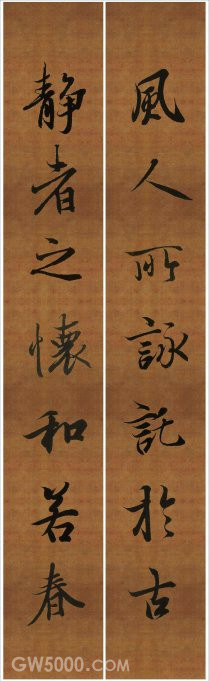 風人所詠託於古
静者之懷和若春
GW5000.COM